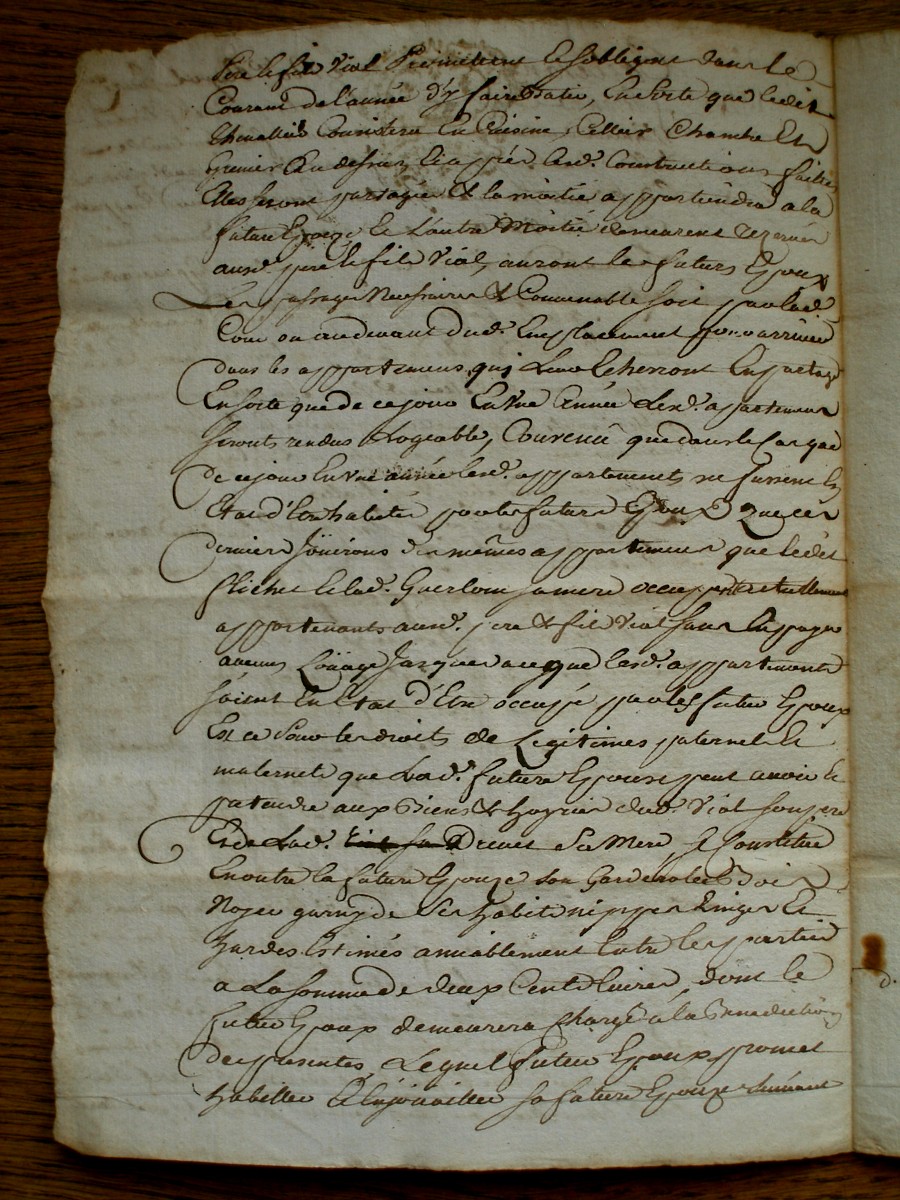 Pere & fils Vial Promettent & sobligent dans le
Courant de l'année d'y faire Batir, En sorte que ledit
Consistera En Cuisine, Cellier Chambre Et
Grenier Au dessus, Et après lesd. Constructions faites
Elles seront partagées & la moitié appartiendra a la
future Epouze & L'autre Moitié demeurera
auxd. pere & fils Vial, auront les futurs Epoux
Les passages Necessaires & Convenable soit par lad.
Cour ou au devant dud. Emplacement pour arriver
dans les appartemens qui Leur Echerront En partage
En sorte que de ce jour En Une Année Lesd. appartemens
seronts rendus Logeable, Convenu que dans le Cas que
de ce jour En une année lesd. appartements ne fussent En
Etat d'Etre habités par les futurs Epoux Que ces
derniers Joüirons des mêmes appartemens que ledit
& lad. sa mere occupent actuellement
appartenants auxd. pere & fils Vial sans En payer
aucuns Loüage Jusques a ce que lesd. appartements
soient En Etat d'Etre occupé par les futurs Epoux
Et ce Pour les droits de Legitimes paternel Et
maternel que Lad. future Epouze peut avoir &
pretendre aux Biens & hoyries dud. Vial son pere
Et de Lad. Sa Mere se Constitue
En outre la future Epouze son Garderobe Bois
Noyer garny de Ses habits nippes Linges Et
hardes Estimés amiablement Entre les parties
a La somme de deux Cent Livres, dont le
futur Epoux demeurera Chargé a la Benediction
des presentes, Lequel futur Epoux promet
habiller & Enjoüailler sa future Epouze